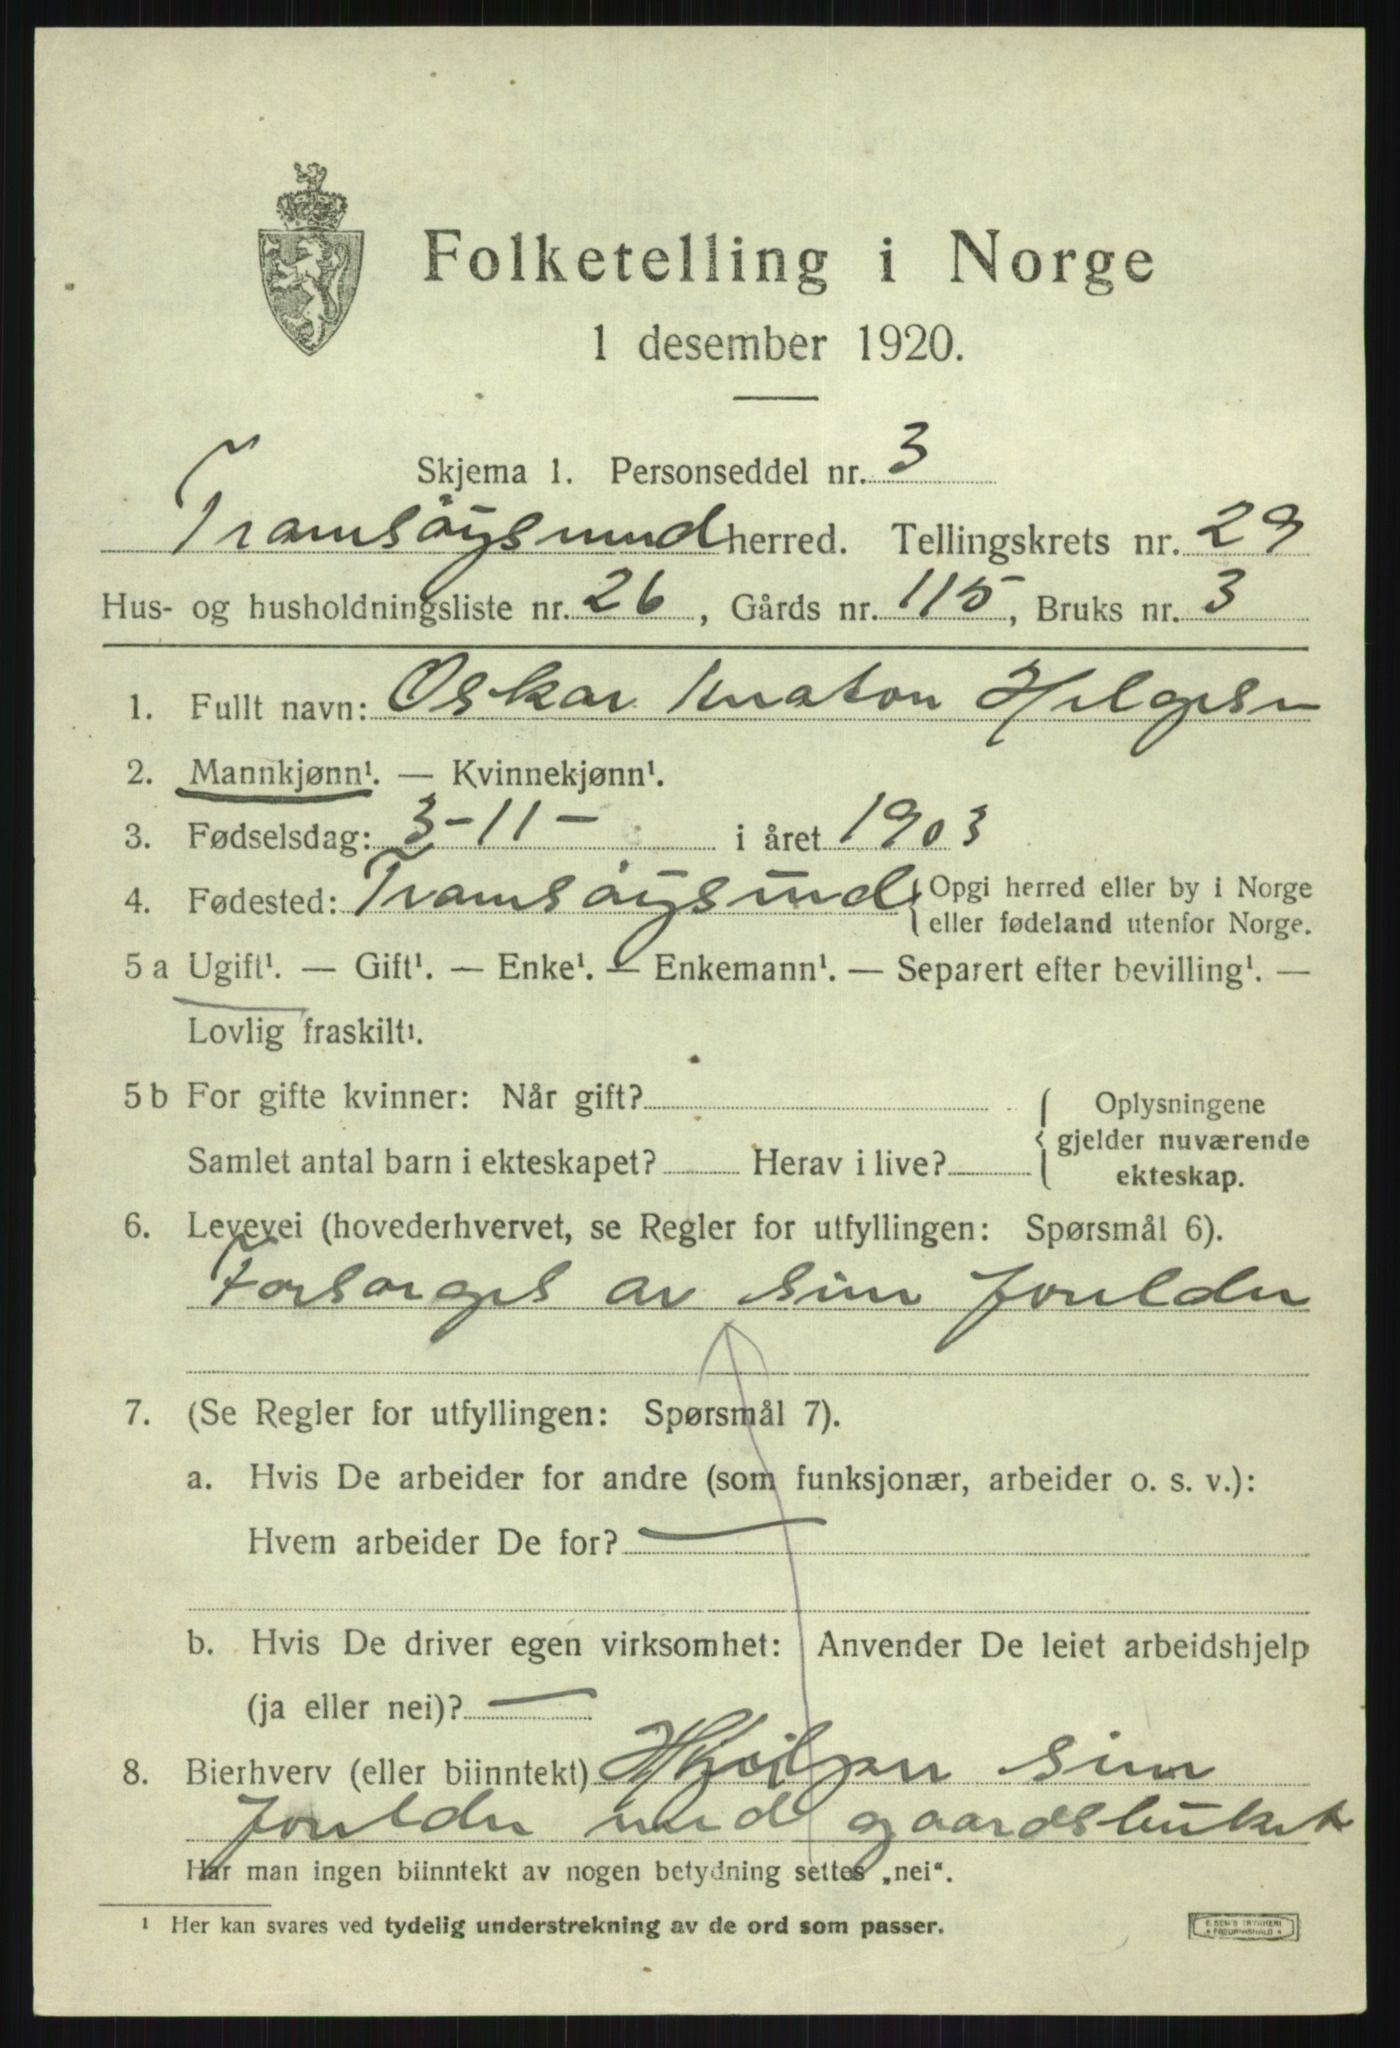 Folketelling i Norge
1 desember 1920.
Skjema 1. Personseddel nr. 3
Tromsøysund herred. Tellingskrets nr. 29
Hus- og husholdningsliste nr. 26, Gårds nr. 115, Bruks nr. 3
1. Fullt navn: Oskar Helgesen
2. Mannkjønn¹. — Kvinnekjønn¹.
3. Fødselsdag: 3-11- i året 1903
4. Fødested: Tromsøysund { Opgi herred eller by i Norge
eller fødeland utenfor Norge.
5 a Ugift¹. — Gift¹. — Enke¹. — Enkemann¹. — Separert efter bevilling¹. —
Lovlig fraskilt¹.
5 b For gifte kvinner: Når gift? { Oplysningene
gjelder nuværende
Samlet antal barn i ekteskapet? Herav i live?
ekteskap.
6. Levevei (hovederhvervet, se Regler for utfyllingen: Spørsmål 6).
Forsørges av sine foreldre
7. (Se Regler for utfyllingen: Spørsmål 7).
a. Hvis De arbeider for andre (som funksjonær, arbeider o. s. v.):
Hvem arbeider De for? —
b. Hvis De driver egen virksomhet: Anvender De leiet arbeidshjelp
(ja eller nei)? —
8. Bierhverv (eller biinntekt) Hjelper sine
foreldre med gaardsbruket
Har man ingen biinntekt av nogen betydning settes „nei“.
¹ Her kan svares ved tydelig understrekning av de ord som passer.
E. SEM'S TRYKKERI
• FREDRIKSHALD •